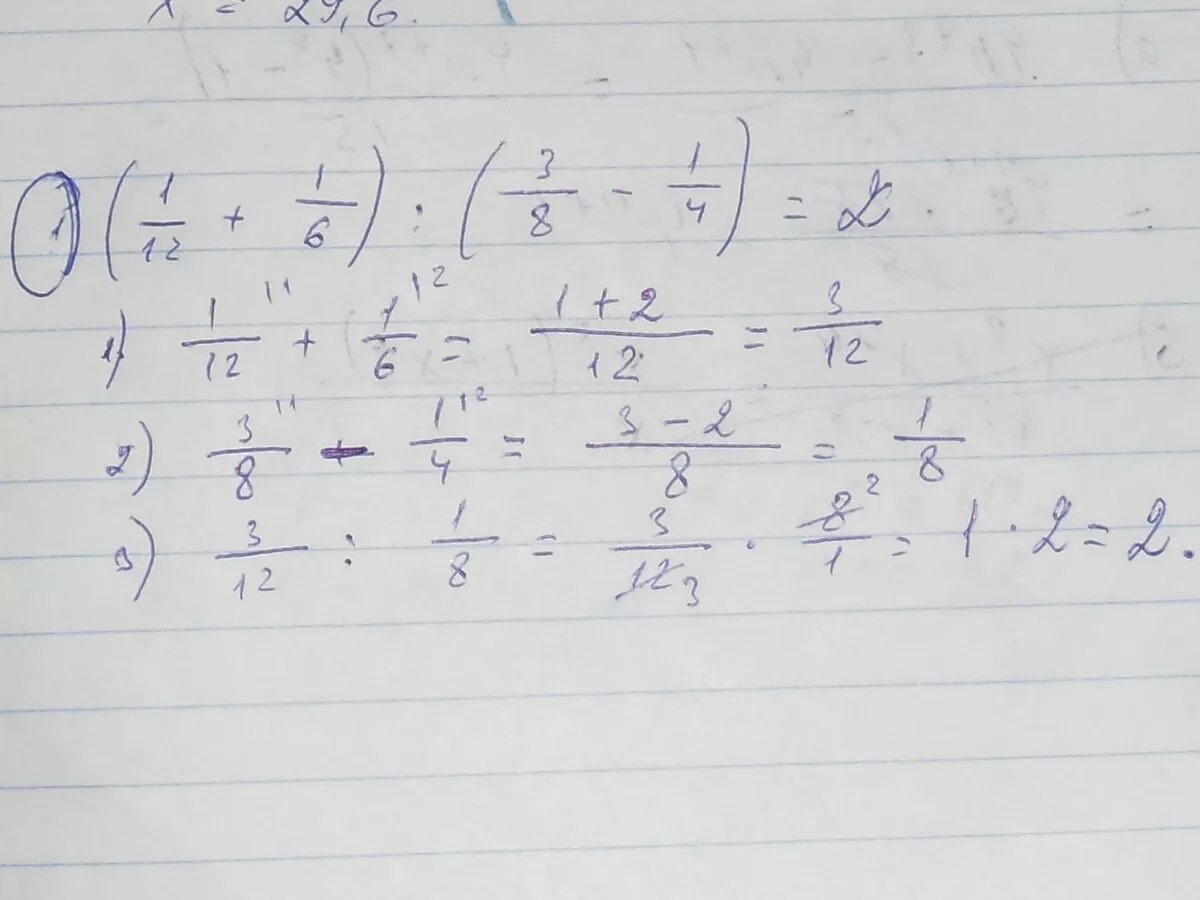 x = 29,6.
1) (1/12 + 1/6) : (3/8 - 1/4) = 2.
1) 1/12 ^1 + 1/6 ^2 = (1 + 2)/12 = 3/12
2) 3/8 ^1 - 1/4 ^2 = (3 - 2)/8 = 1/8
3) 3/12 : 1/8 = 3/12 3 · 8 2/1 = 1 · 2 = 2.